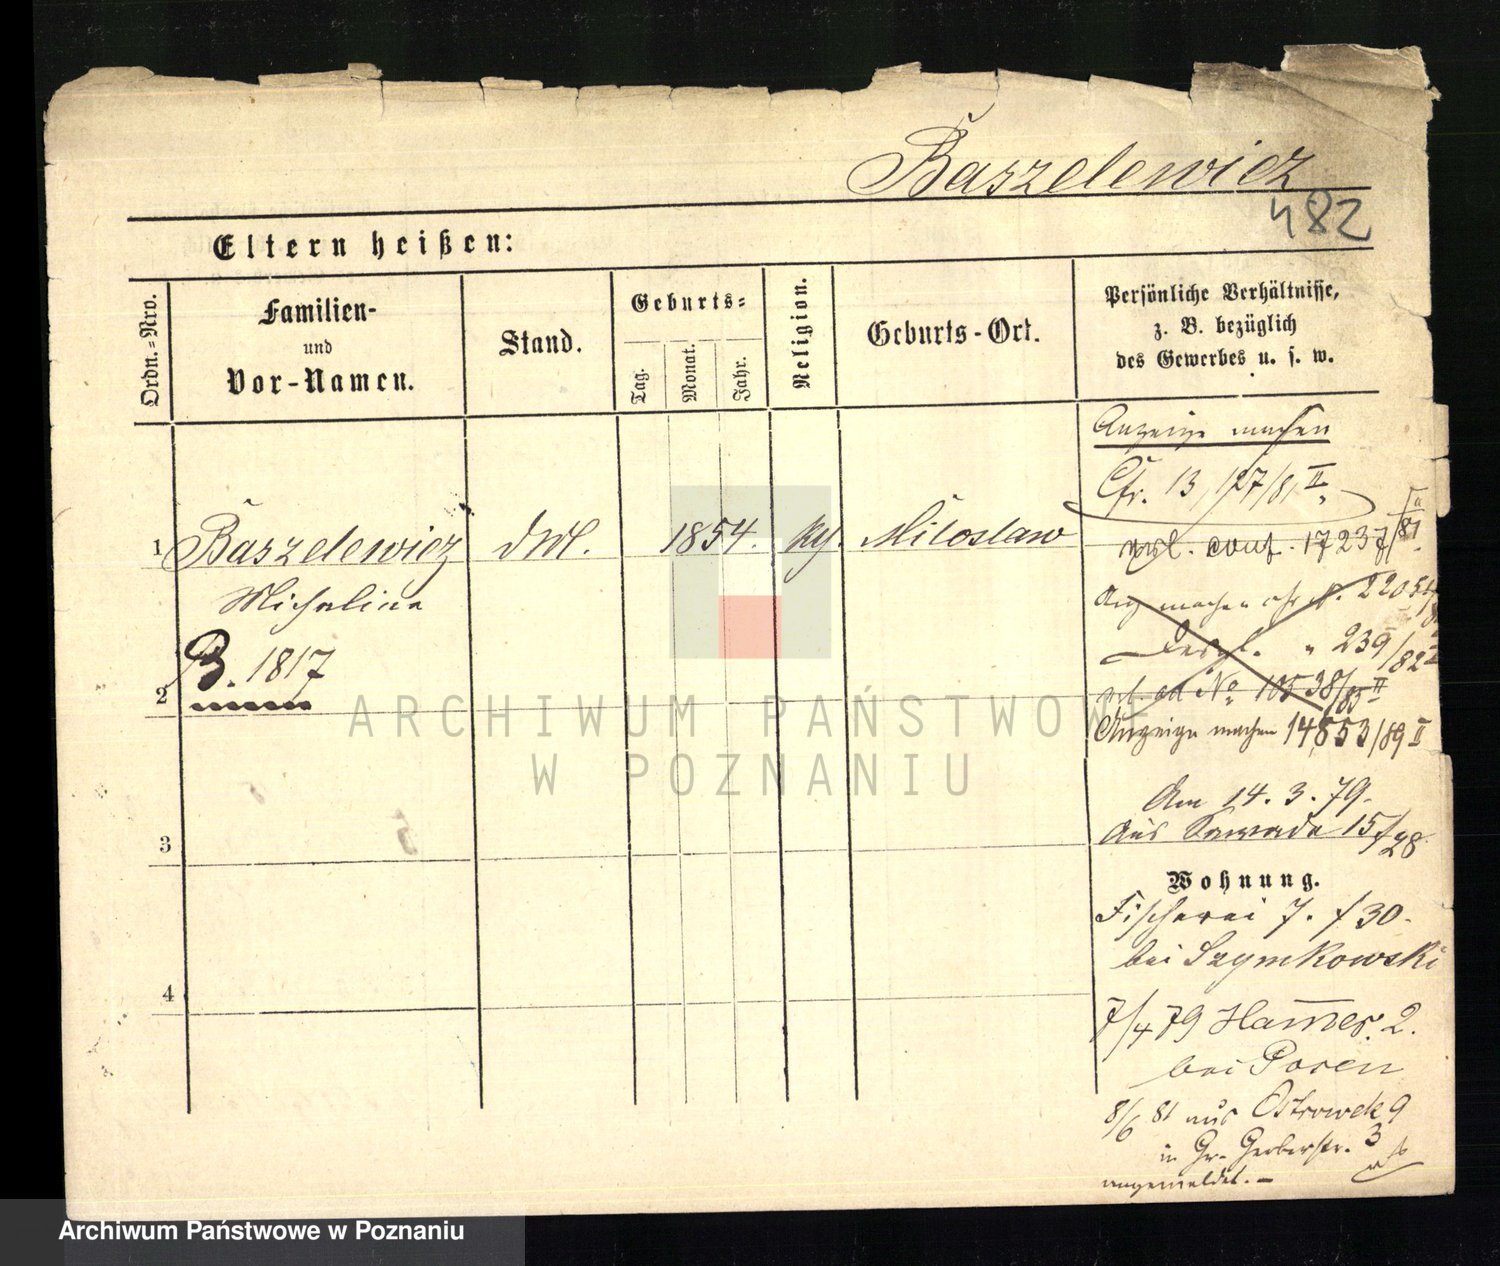 Baszelewicz
482
Eltern heißen:
Ordn.=Nro.
Familien-
und
Vor-Namen.
Stand.
Geburts=
Tag.
Monat.
Jahr.
Religion.
Geburts-Ort.
Persönliche Verhältnisse,
z. B. bezüglich
des Gewerbes u. s. w.
Anzeige machen
Cfr. 13,127/81 II
1 Baszelewicz 1854. Miloslaw
conf. 17237/81
Michalina
machen 22054
B. 1817
Desgl. " 239/82
2
ad No. 10538/85 II
Anzeige machen 14853/89 II
Am 14.3.79.
aus 15/28
3
Wohnung.
Fischerei 7. /30.
bei Szymkowski
4
7/4 79 Hammer. 2.
bei Posen
8/6 81 aus Ostrowek 9
in Gr. Gerberstr. 3
angemeldet. —
ARCHIWUM PAŃSTWOWE
W POZNANIU
Archiwum Państwowe w Poznaniu